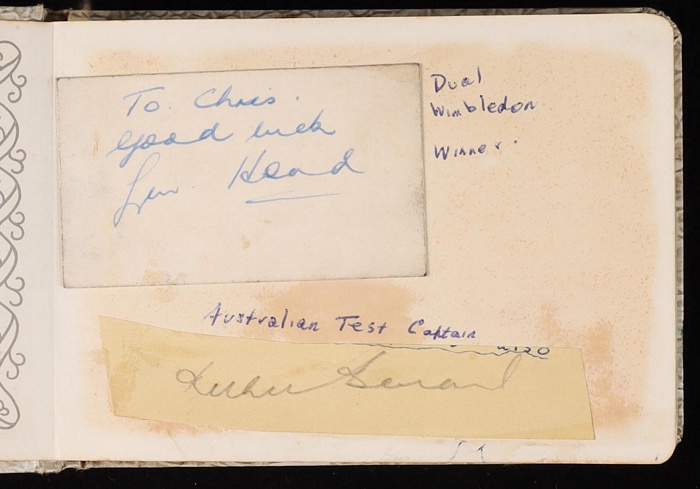 To. Chris.
Good luck
Lew Hoad
Dual
Wimbledon
Winner.
Australian Test Captain